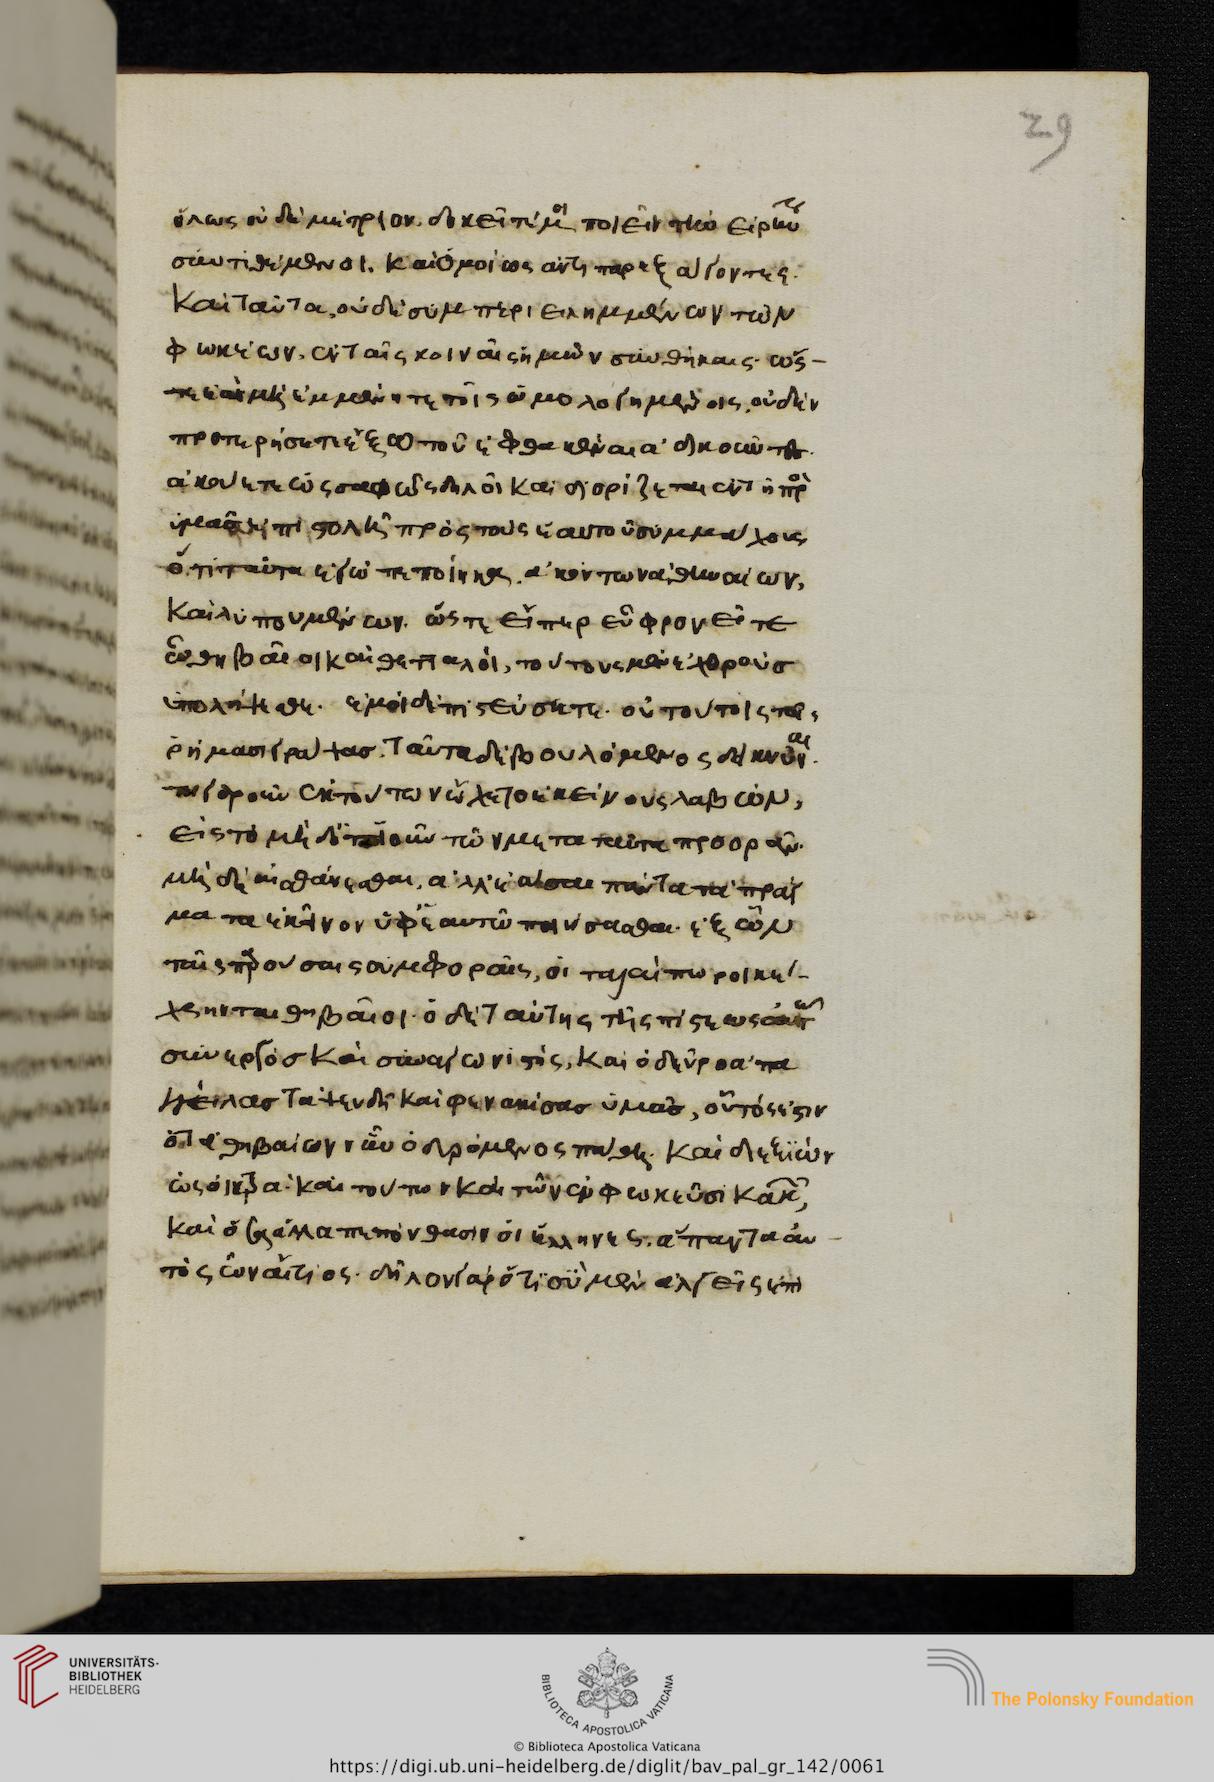 29
ὅλως οὐδὲ μέτριόν. δοκεῖτέ μοι ποιεῖν τὴν εἰρήνην
συντιθέμενοι. καὶ ὁμοίως ἀντιπαρεξάγοντες.
καὶ ταῦτα, οὐδὲ συμπεριειλημμένων τῶν
φωκέων. ἐν ταῖς κοιναῖς ἡμῶν συνθήκαις. ὥσ–
τε ἐὰν μὴ ἐμμένητε τοῖς ὡμολογημένοις, οὐδὲν
προτερήσετε ἔξω τοῦ ἐφθακέναι ἀδικοῦντες.
ἀκούετε ὡς σαφῶς δηλοῖ καὶ διορίζεται ἐν τῇ πρὸς
ὑμᾶς ἐπιστολῇ πρὸς τοὺς ἑαυτοῦ συμμάχους
ὅτι ταῦτα ἐγὼ πεποίηκα. ἀκόντων ἀθηναίων,
καὶ λυπουμένων. ὥστε εἴπερ εὖ φρονεῖτε
ὦ θηβαῖοι καὶ θετταλοὶ, τούτους μὲν ἐχθροὺσ
ὑπολήψεσθε. ἐμοὶ δὲ πιστεύσητε. οὐ τούτοις τοῖς
ῥήμασι γράψασ. ταῦτα δὲ βουλόμενος δεικνύναι.
τοιγαροῦν ἐκ τούτων ὤχετο ἐκείνους λαβὼν,
εἰς τὸ μὴ δ' ὁτιοῦν τῶν μετὰ ταῦτα προορᾶν.
μὴ δὲ αἰσθάνεσθαι. ἀλλ' ἐᾶσαι πάντα τὰ πράγ
ματα ἐκεῖνον ὑφ' ἑαυτῶ ποιήσασθαι. ἐξ ὧν
ταῖς παρούσαις συμφοραῖς, οἱ ταλαίπωροι κέ–
χρηνται θηβαῖοι. ὁ δὲ ταύτης τῆς πίστεως αὐτῶ
συνεργὸσ καὶ συναγωνιστὴς, καὶ ὁ δεῦρο ἀπα
γγείλασ τὰ ψευδῆ καὶ φενακίσασ ὑμᾶσ, οὗτός ἐστιν
ὁ τὰ θηβαίων νῦν ὀδυρόμενος πάθη. καὶ διεξϊὼν
ὡς οἰκτρὰ. καὶ τούτων καὶ τῶν ἐν φωκεῦσι κακῶν,
καὶ ὅσ' ἄλλα πεπόνθασιν οἱ ἕλληνες. ἁπάντων αὐ–
τὸς ὢν αἴτιος. δῆλον γὰρ ὅτι σὺ μὲν ἀλγεῖς ἐπὶ
UNIVERSITÄTS-
BIBLIOTHEK
HEIDELBERG
BIBLIOTECA APOSTOLICA VATICANA
© Biblioteca Apostolica Vaticana
The Polonsky Foundation
https://digi.ub.uni-heidelberg.de/diglit/bav_pal_gr_142/0061